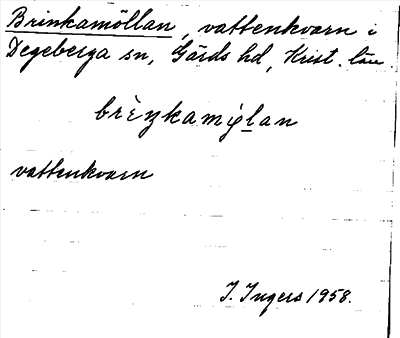 Brinkamöllan, vattenkvarn i
Degeberga sn, Gärds hd, Krist. län.
vattenkvarn
I. Ingers 1958.